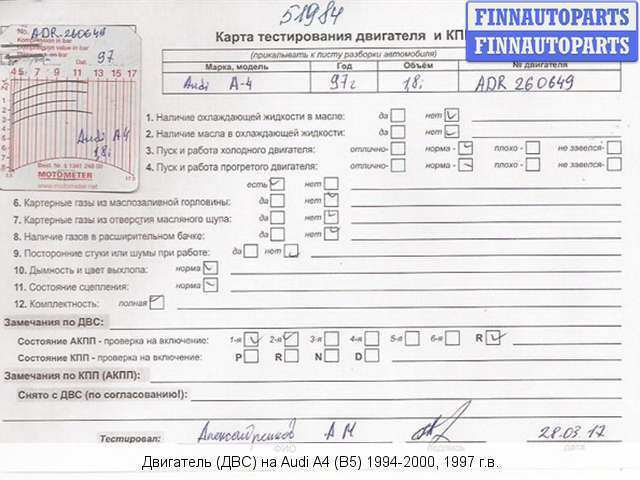 51984
FINNAUTOPARTS
FINNAUTOPARTS
No. ADR 260649
Kompression in bar
Compression value in bar
Dat. 97
4 5 7 9 11 13 15 17
Audi A4
1,8i
Best. Nr. 6 1241 248 00
MOTOMETER
www.motometer.net
Карта тестирования двигателя и КП
(прикалывать к листу разборки автомобиля)
Марка, модель Год Объём № двигателя
Audi A-4 97г 1,8i ADR 260649
1. Наличие охлаждающей жидкости в масле: да нет
2. Наличие масла в охлаждающей жидкости: да нет
3. Пуск и работа холодного двигателя: отлично- норма - плохо - не завелся-
4. Пуск и работа прогретого двигателя: отлично- норма - плохо - не завелся-
есть нет
6. Картерные газы из маслозаливной горловины: да нет
7. Картерные газы из отверстия масляного щупа: да нет
8. Наличие газов в расширительном бачке: да нет
9. Посторонние стуки или шумы при работе: да нет
10. Дымность и цвет выхлопа: норма
11. Состояние сцепления: норма
12. Комплектность: полная
Замечания по ДВС:
Состояние АКПП - проверка на включение: 1-я 2-я 3-я 4-я 5-я 6-я R
Состояние КПП - проверка на включение: P R N D
Замечания по КПП (АКПП):
Снято с ДВС (по согласованию!):
Тестировал: А М 28.03 17
ФИО подпись дата
Двигатель (ДВС) на Audi A4 (B5) 1994-2000, 1997 г.в.